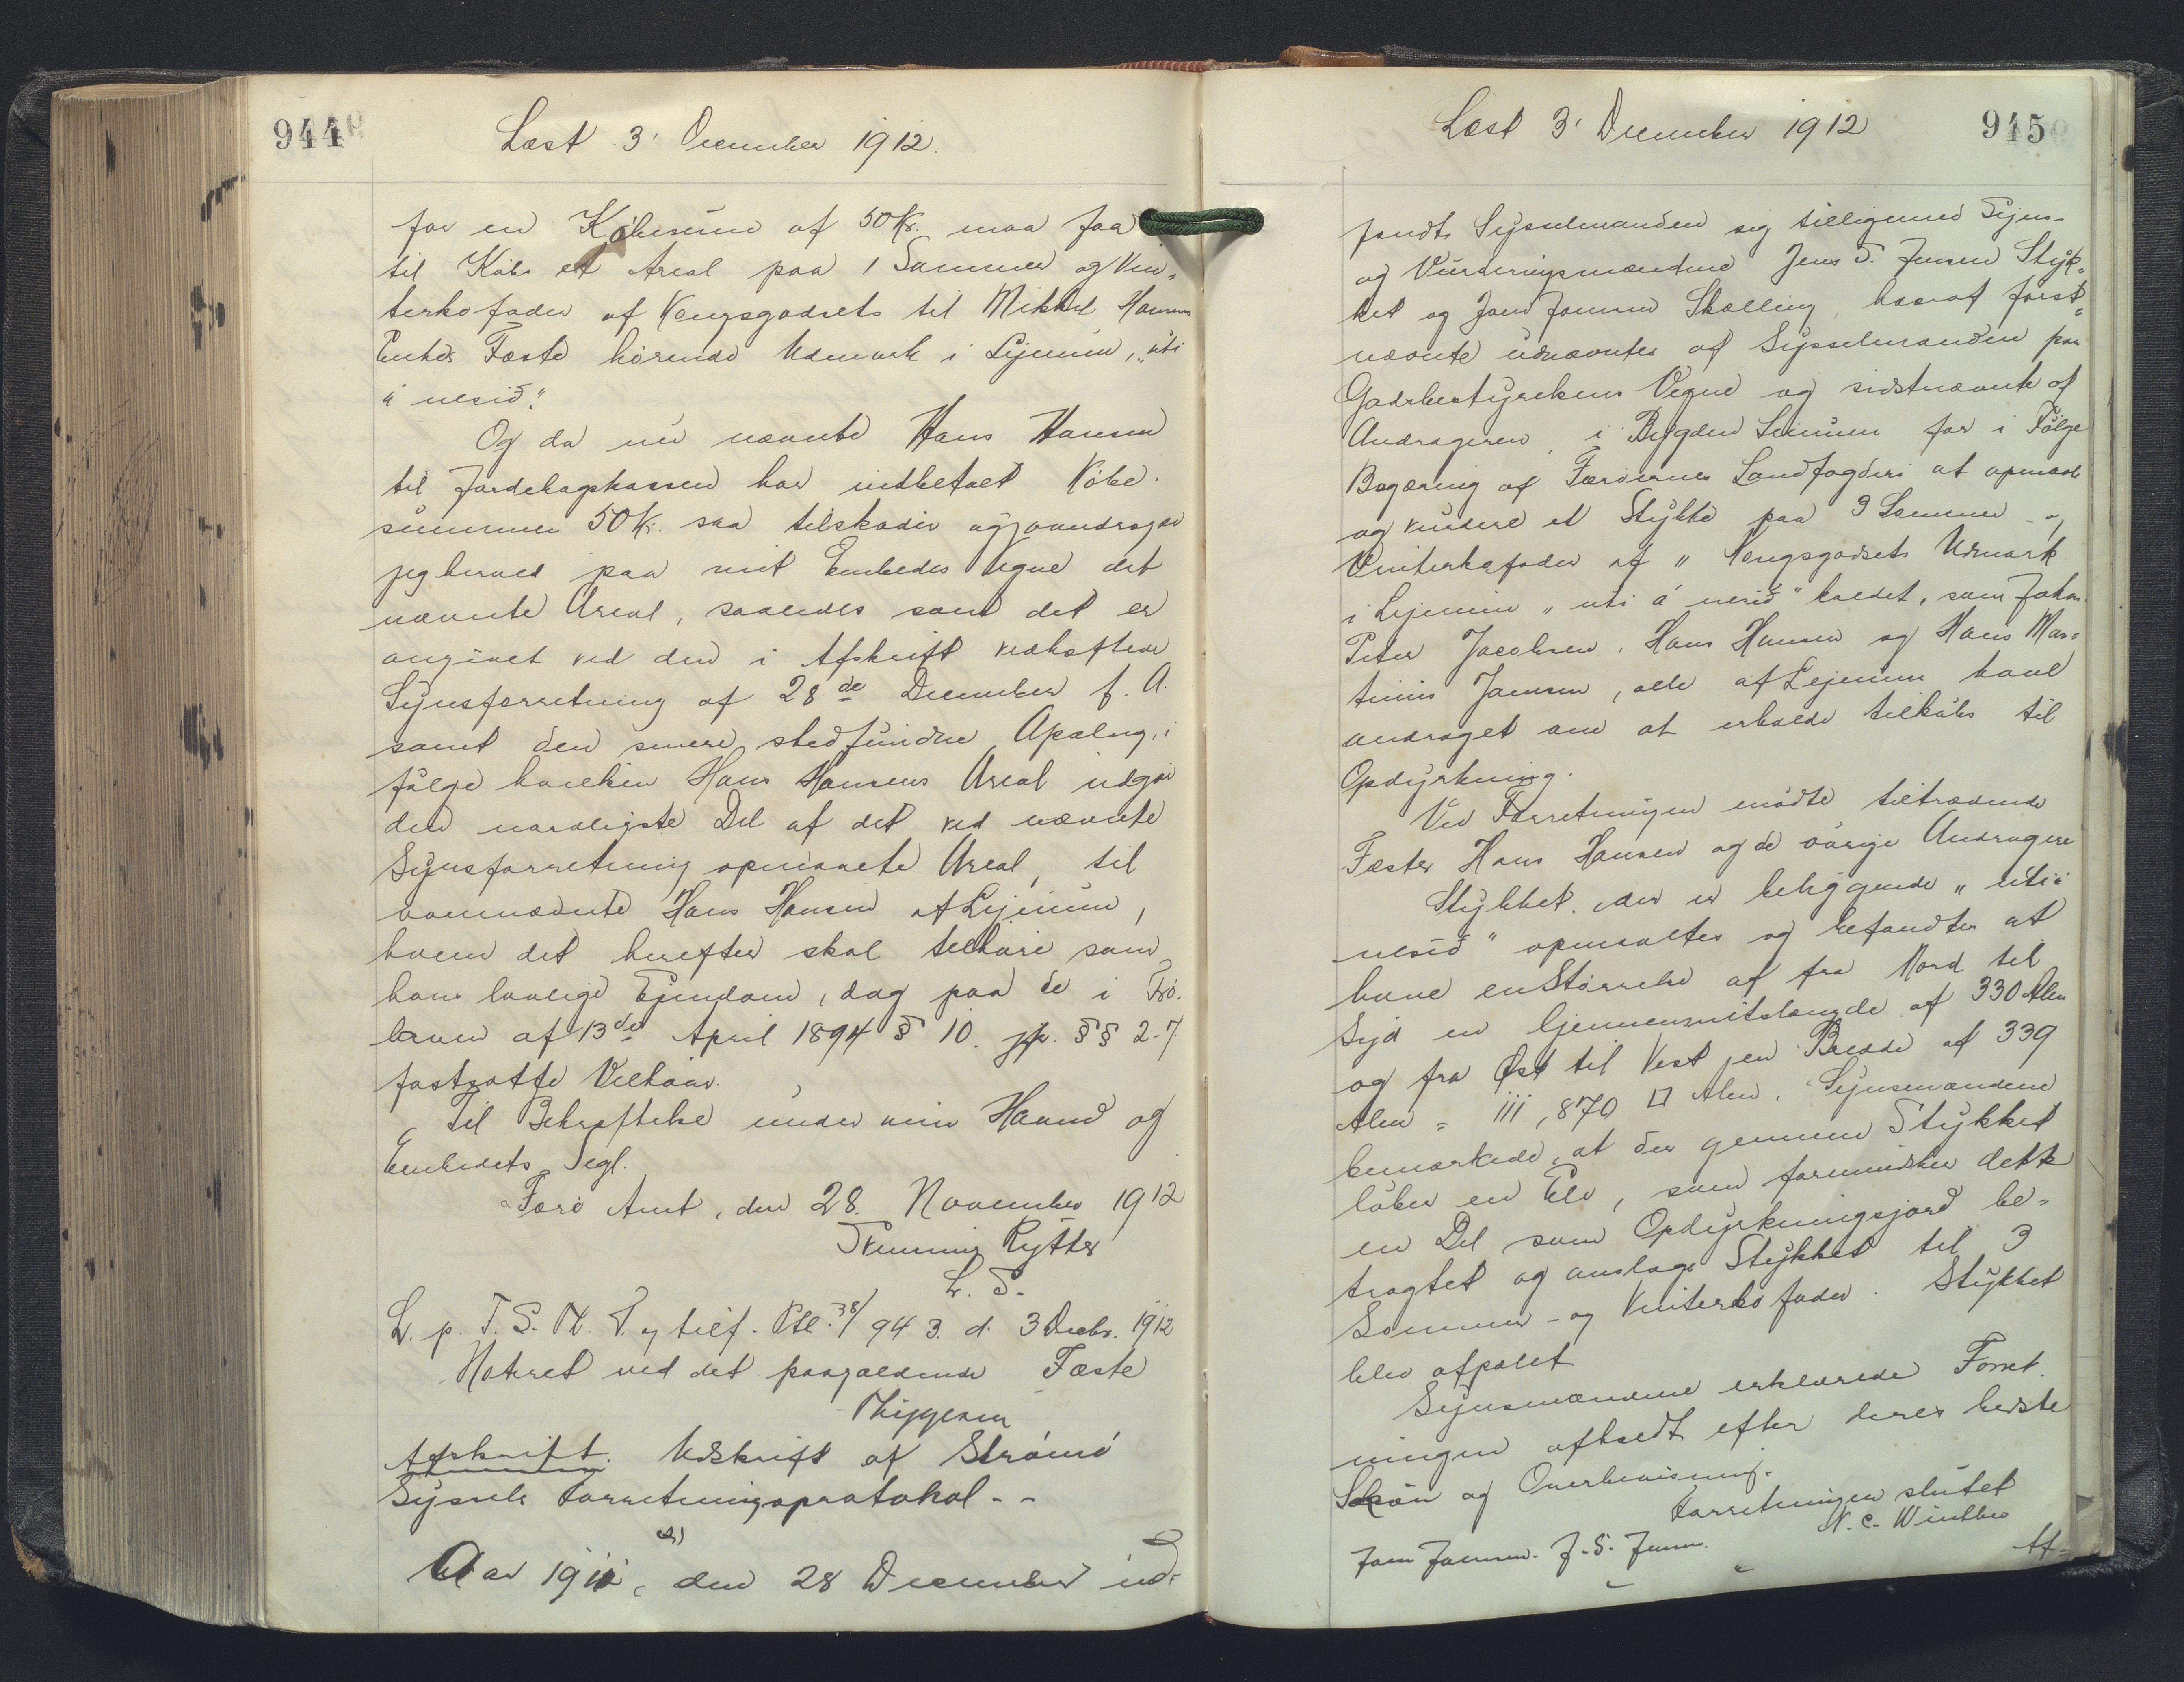 944
Læst 3' December 1912.
for en Købesum af 50 Kr. maa faa
til Købs et Areal paa 1 Sommer og Vin-
terkofoder af Kongsgodsets til Mikkel Hansens
Enkes Fæste hørende Udmark i Lejnum, "uti
á nesið."
Og da nu nævnte Hans Hansen
til Jordebogskassen har indbetalt Købe-
summen 50 Kr. saa tilskøder og overdrager
jeg herved paa mit Embedes Vegne det
nævnte Areal, saaledes som det er
angivet ved den i Afskrift vedhæftede
Synsforretning af 28de December f. A.
samt den senere stedfundne Apæling, i
følge hvilken Hans Hansens Areal udgør
den nordligste Del af det ved nævnte
Synsforretning opmaalte Areal, til
ovennævnte Hans Hansen af Lejnum,
hvem det herefter skal tilhøre som
hans lovlige Ejendom, dog paa de i Frd.
loven af 13de April 1894 § 10. jfr. §§ 2-7
fastsatte Vilkaar.
Til Bekræftelse under min Haand og
Embedets Segl.
Færø Amt, den 28. November 1912
Flemming Rytter
L. S.
L. p. F. S. R. T. og tilf. Ptl. 38/943. d. 3 Decbr. 1912
Noteret ved det paagældende Fæste
Thygesen
Afskrift. Udskrift af Strømø
Syssels Forretningsprotokol. - -
Aar 1911, den 28 December ind-
945
Læst 3' December 1912
fandt Sysselmanden sig tilligemed Syns-
og Vurderingsmændene Jens S. Jensen Styk-
ket og Joen Joensen Skælling, hvoraf først-
nævnte udnævntes af Sysselmanden paa
Godsbestyrelsens Vegne og sidstnævnte af
Andrageren, i Bygden Leinum for i Følge
Begæring af Færøernes Landfogderi at opmaale
og vurdere et Stykke paa 3 Sommer - og
Vinterkofoder af "Kongsgodsets Udmark
i Lejnum "uti á nesið" kaldet, som Johan
Peter Jacobsen, Hans Hansen og Hans Mar-
tinus Joensen, alle af Lejnum have
andraget om at erholde tilkøbs til
Opdyrkning.
Ved Forretningen mødte tiltrædende
Fæster Hans Hansen og de øvrige Andragere
Stykket, der er beliggende "uti á
nesið" opmaaltes og befandtes at
have en Størrelse af fra Nord til
Syd en Gjennemsnitslængde af 330 Alen
og fra Øst til Vest en Bredde af 339
Alen = 111,870 □ Alen. Synsmændene
bemærkede, at der gennem Stykket
løber en Elv, som formindsker dette
en Del som Opdyrkningsjord be-
tragtet og anslog Stykket til 3
Sommer- og Vinterkofoder. Stykket
blev afpælet
Synsmændene erklærede Forret-
ningen afholdt efter deres bedste
Skøn og Overbevisning.
Forretningen sluttet
N. C. Winther
Joen Joensen. J. S. Jensen.
Af-